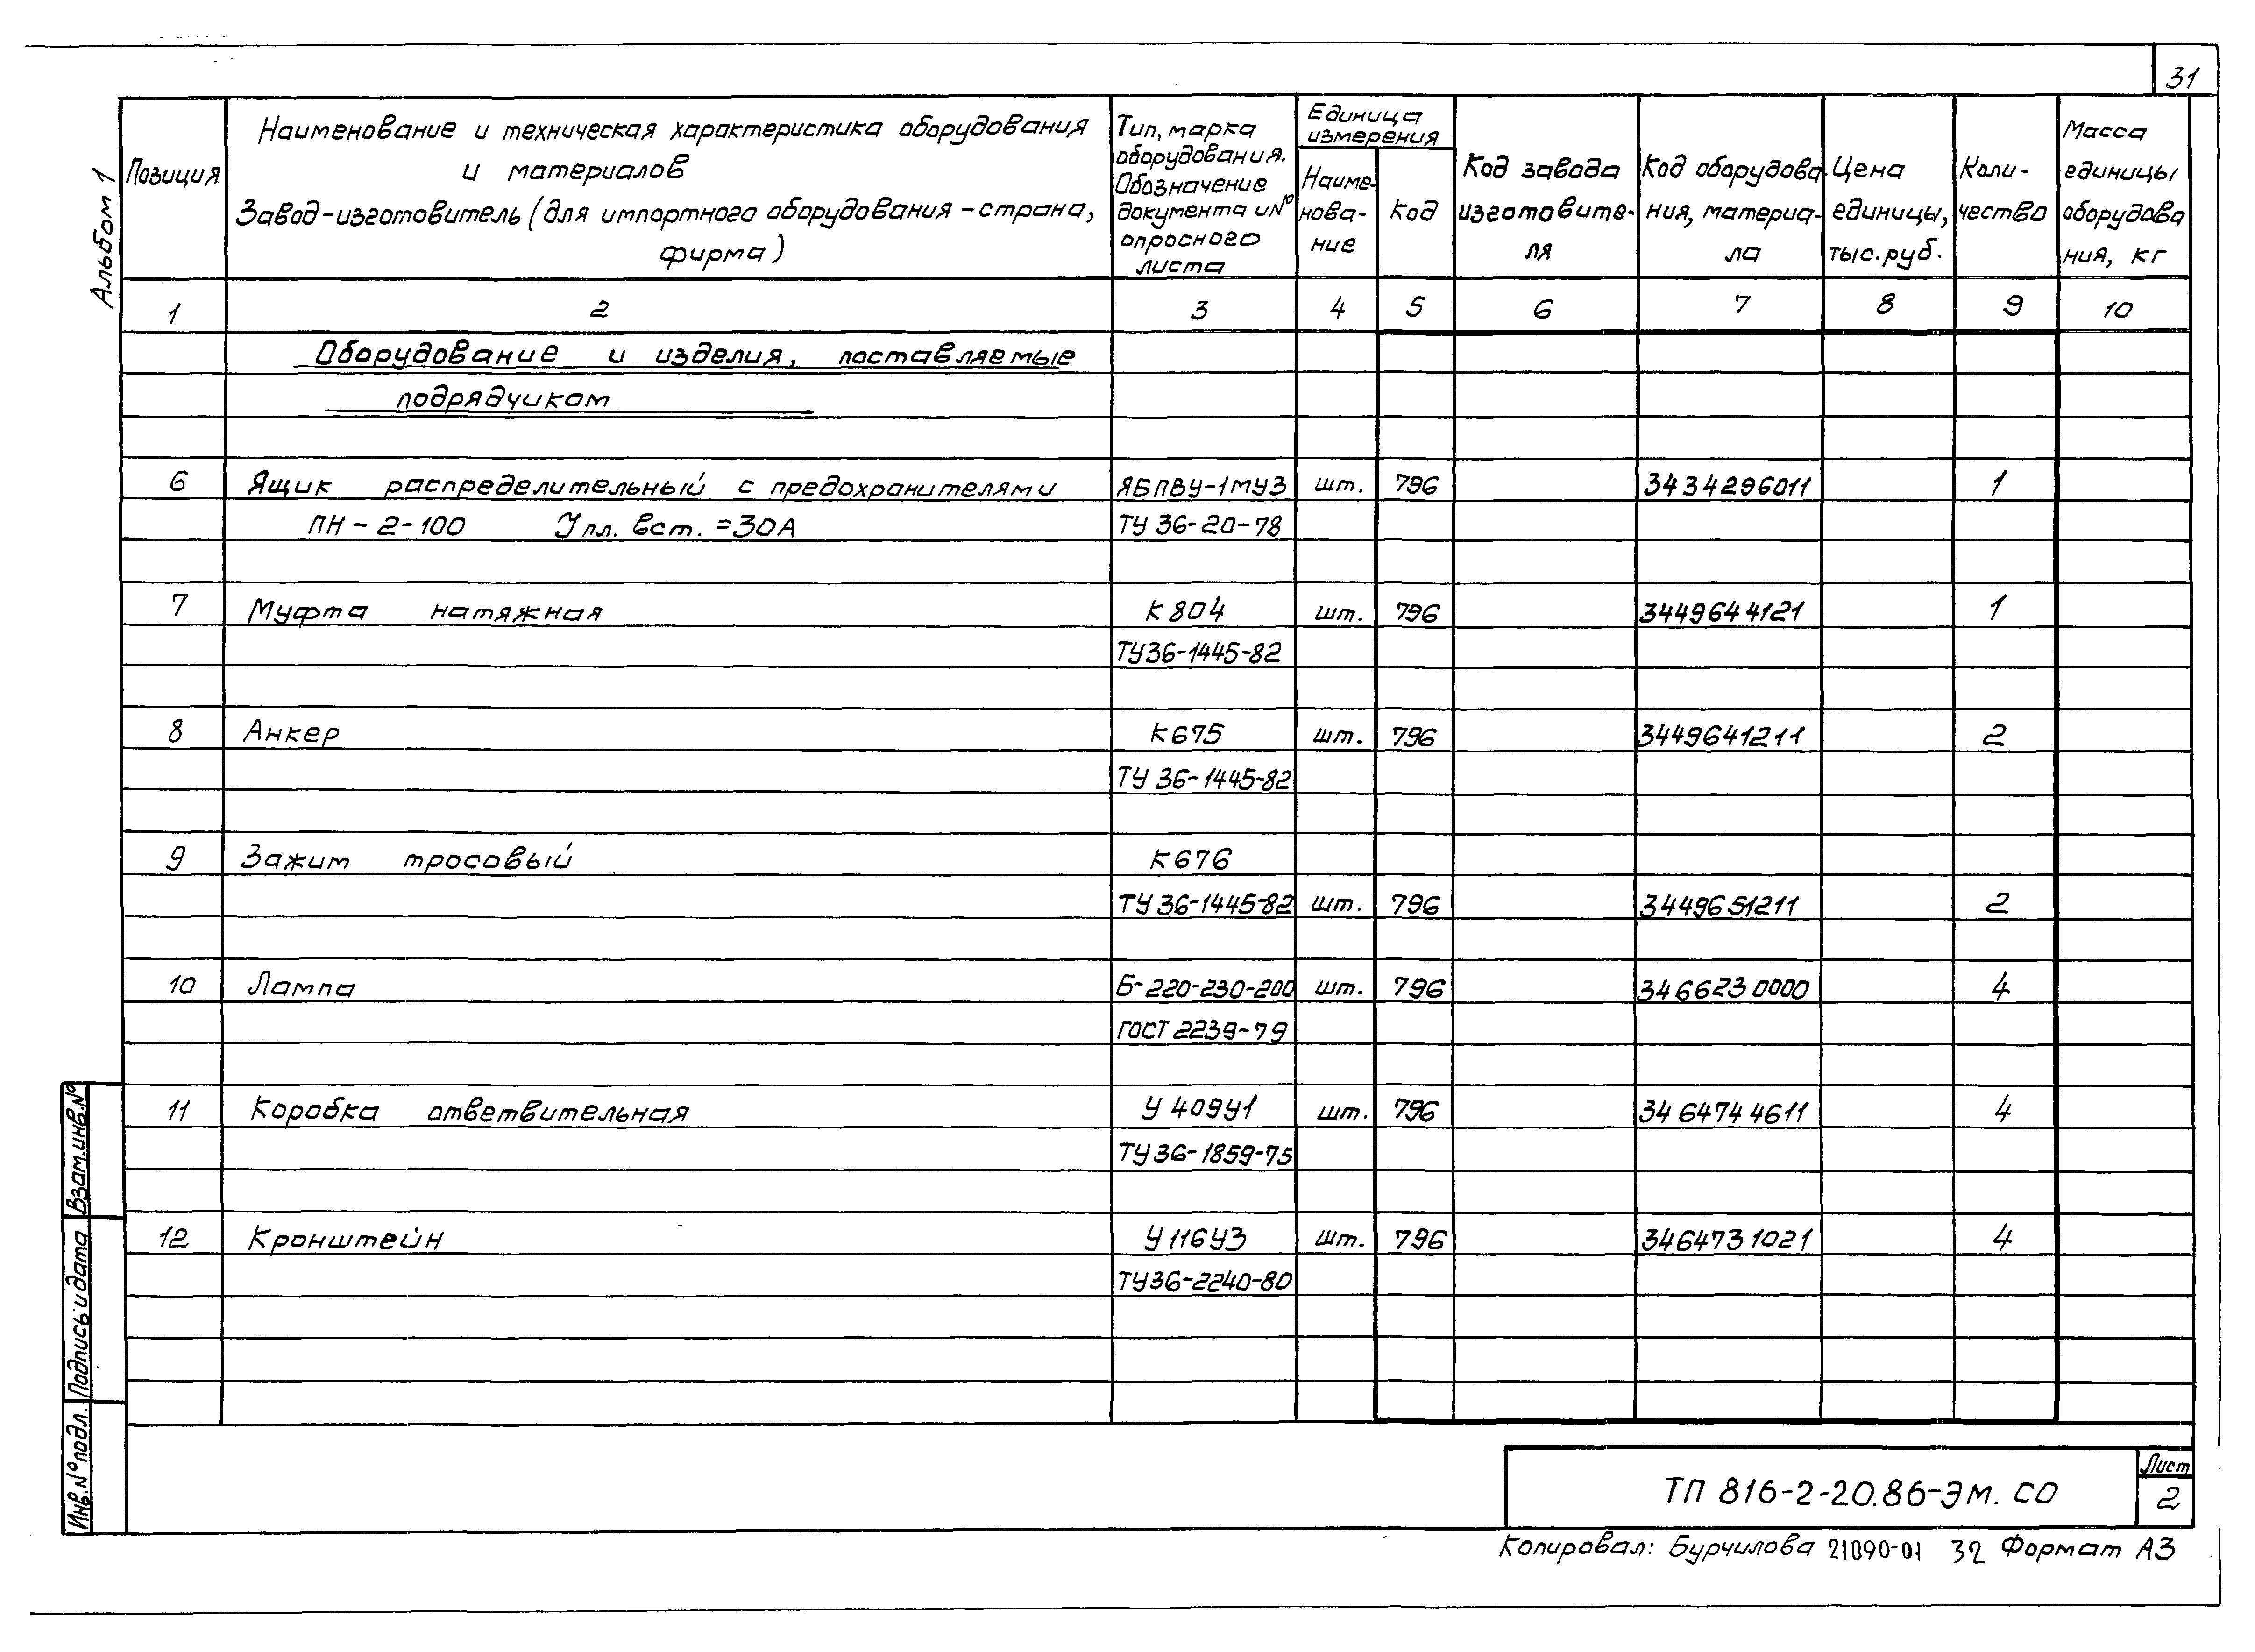 31
Альбом 1
Позиция
Наименование и техническая характеристика оборудования
и материалов
Завод-изготовитель (для импортного оборудования - страна,
фирма)
Тип, марка
оборудования.
Обозначение
документа и №
опросного
листа
Единица
измерения
Наиме-
нова-
ние
Код
Код завода
изготовите-
ля
Код оборудова-
ния, материа-
ла
Цена
единицы,
тыс. руб.
Коли-
чество
Масса
единицы
оборудова
ния, кг
1 2 3 4 5 6 7 8 9 10
Оборудование и изделия, поставляемые
подрядчиком
6 Ящик распределительный с предохранителями ЯБПВУ-1МУ3 шт. 796 3434296011 1
ПН-2-100 Jпл. вст. =30А ТУ 36-20-78
7 Муфта натяжная К804 шт. 796 3449644121 1
ТУ36-1445-82
8 Анкер К675 шт. 796 3449641211 2
ТУ 36-1445-82
9 Зажим тросовый К676
ТУ 36-1445-82 шт. 796 3449651211 2
10 Лампа Б-220-230-200 шт. 796 3466230000 4
ГОСТ 2239-79
11 Коробка ответвительная У409У1 шт. 796 3464744611 4
ТУ36-1859-75
12 Кронштейн У116У3 шт. 796 3464731021 4
ТУ36-2240-80
Взам.инв.№
Подпись и дата
Инв.№ подл.
ТП 816-2-20.86-ЭМ. СО
Лист
2
Копировал: Бурчилова 21090-01 32 Формат А3